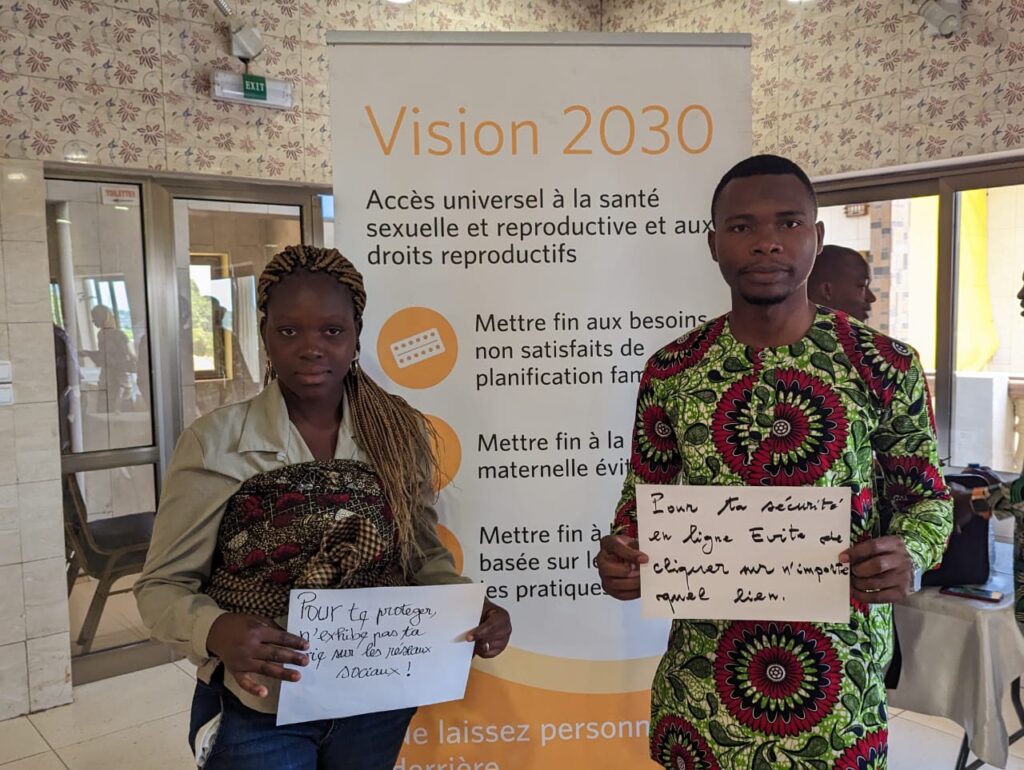 EXIT
TOILETTES
Vision 2030
Accès universel à la santé
sexuelle et reproductive et aux
droits reproductifs
Mettre fin aux besoins
non satisfaits de
planification fam
Mettre fin à la
maternelle évit
Mettre fin à
basée sur le
es pratiques
e laissez personn
derrière
Pour ta sécurité
en ligne Evite de
cliquer sur n'importe
quel lien.
Pour te protéger,
n'exhibe pas ta
vie sur les reseaux
sociaux !